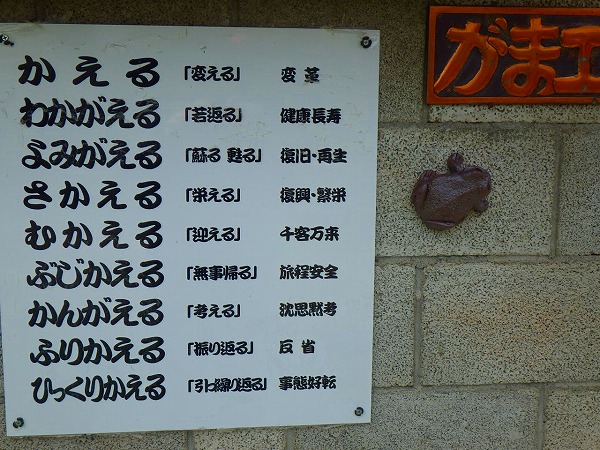 かえる 「変える」 変革
わかがえる 「若返る」 健康長寿
よみがえる 「蘇る 甦る」 復旧・再生
さかえる 「栄える」 復興・繁栄
むかえる 「迎える」 千客万来
ぶじかえる 「無事帰る」 旅程安全
かんがえる 「考える」 沈思黙考
ふりかえる 「振り返る」 反省
ひっくりかえる 「引っ繰り返る」 事態好転
がま工